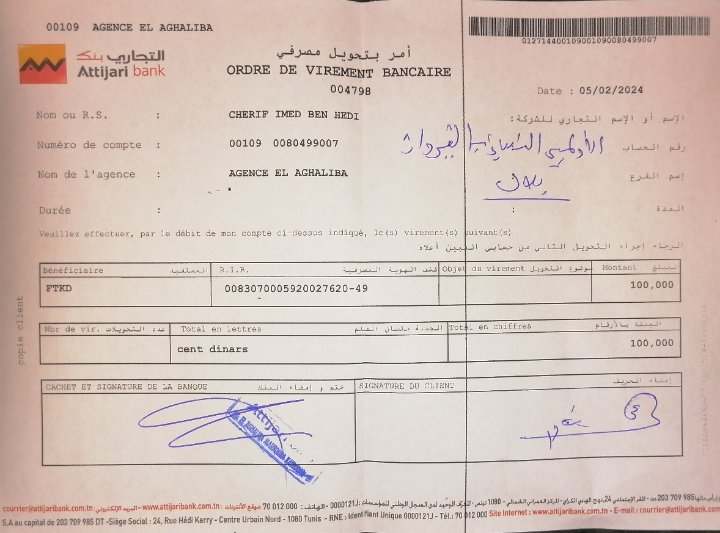 00109 AGENCE EL AGHALIBA
0127144001090010900804990​07
التجاري بنك
Attijari bank
أمر بتحويل مصرفي
ORDRE DE VIREMENT BANCAIRE
004798
Date : 05/02/2024
Nom ou R.S. : CHERIF IMED BEN HEDI
الإسم أو الإسم التجاري للشركة:
Numéro de compte : 00109 0080499007
رقم الحساب
Nom de l'agence : AGENCE EL AGHALIBA
إسم الفرع
Durée :
: المدة
Veuillez effectuer, par le débit de mon compte ci-dessus indiqué, le(s) virement(s) suivant(s)
الرجاء إجراء التحويل التالي من حسابي المبين أعلاه
bénéficiaire المستفيد R.I.B. كشف الهوية المصرفية Objet du virement موضوع التحويل Montant المبلغ
FTKD 0083070005920027620-49 100,000
Nbr de vir. عدد التحويلات Total en lettres الجملة بلسان القلم Total en chiffres الجملة بالأرقام
cent dinars 100,000
CACHET ET SIGNATURE DE LA BANQUE ختم و إمضاء البنك SIGNATURE DU CLIENT إمضاء الحريف
Attijari
copie client
courrier@attijaribank.com.tn : البريد الإلكتروني - www.attijaribank.com.tn : موقع الأنترنات - 70 012 000 : الهاتف
S.A au capital de 203 709 985 DT -Siège Social : 24, Rue Hédi Karry - Centre Urbain Nord - 1080 Tunis - RNE : Identifiant Unique 0000121J - Tél.: 70 012 000 Site Internet : www.attijaribank.com.tn - E-mail : courrier@attijaribank.com.tn